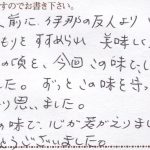 すのでお書き下さい。
人前に、伊那の友人より
もりをすすめられ 美味しく
の頃を、今回この味むし
した。ずっとこの味を守っ
り思いました。
の味で、心が若がえりまし
うございました。